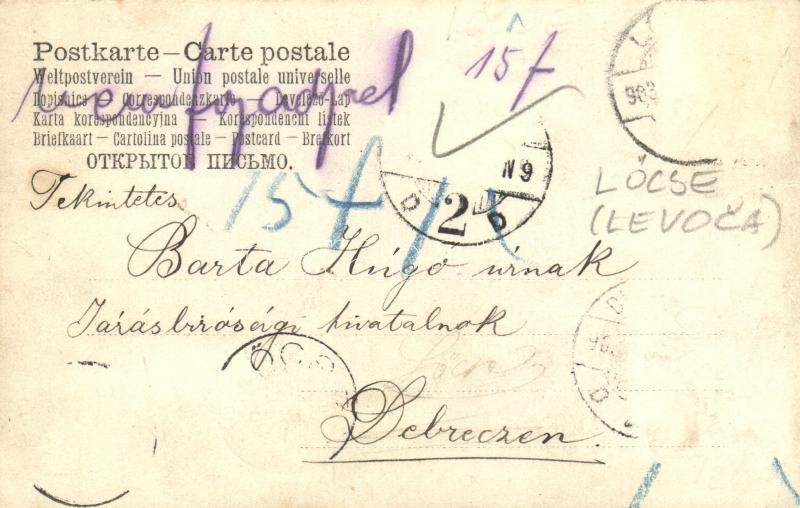 Postkarte – Carte postale
Weltpostverein — Union postale universelle
Dopisnice — Correspondenzkarte — Levelező-Lap
Karta korespondencyjna — Korespondenčni listek
Briefkaart — Cartolina postale — Postcard — Brefkort
ОТКРЫТОЕ ПИСЬМО.
15 f
15 f
2
D D
N9
LŐCSE
(LEVOČA)
Tekintetes
Barta Húgó úrnak
Járásbirósági hivatalnok
Debreczen.